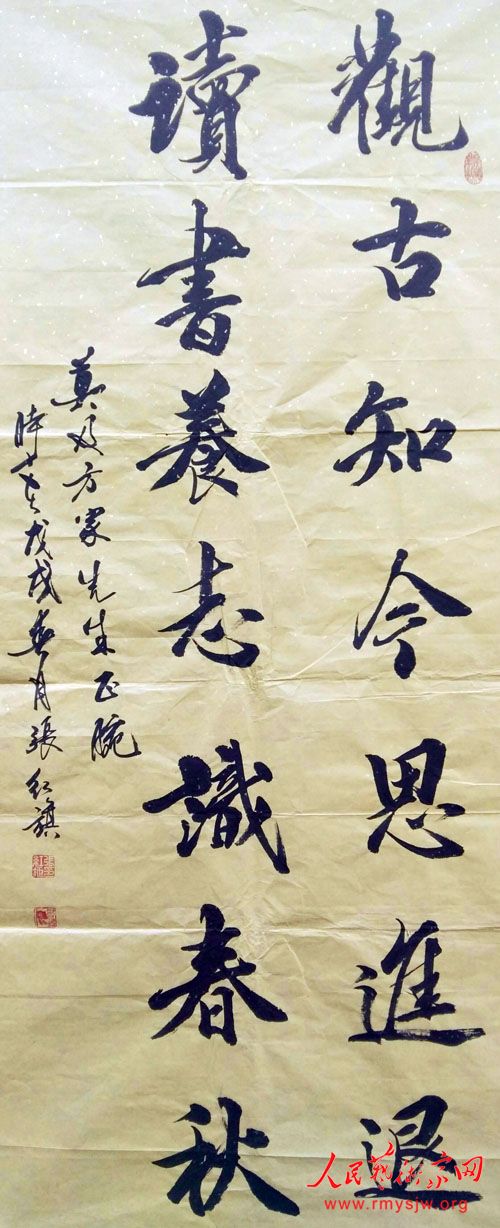 觀古知今思進退
讀書養志識春秋
方家先生正腕
時在戊戌春月張紅旗
人民藝術家网
www.rmysjw.org